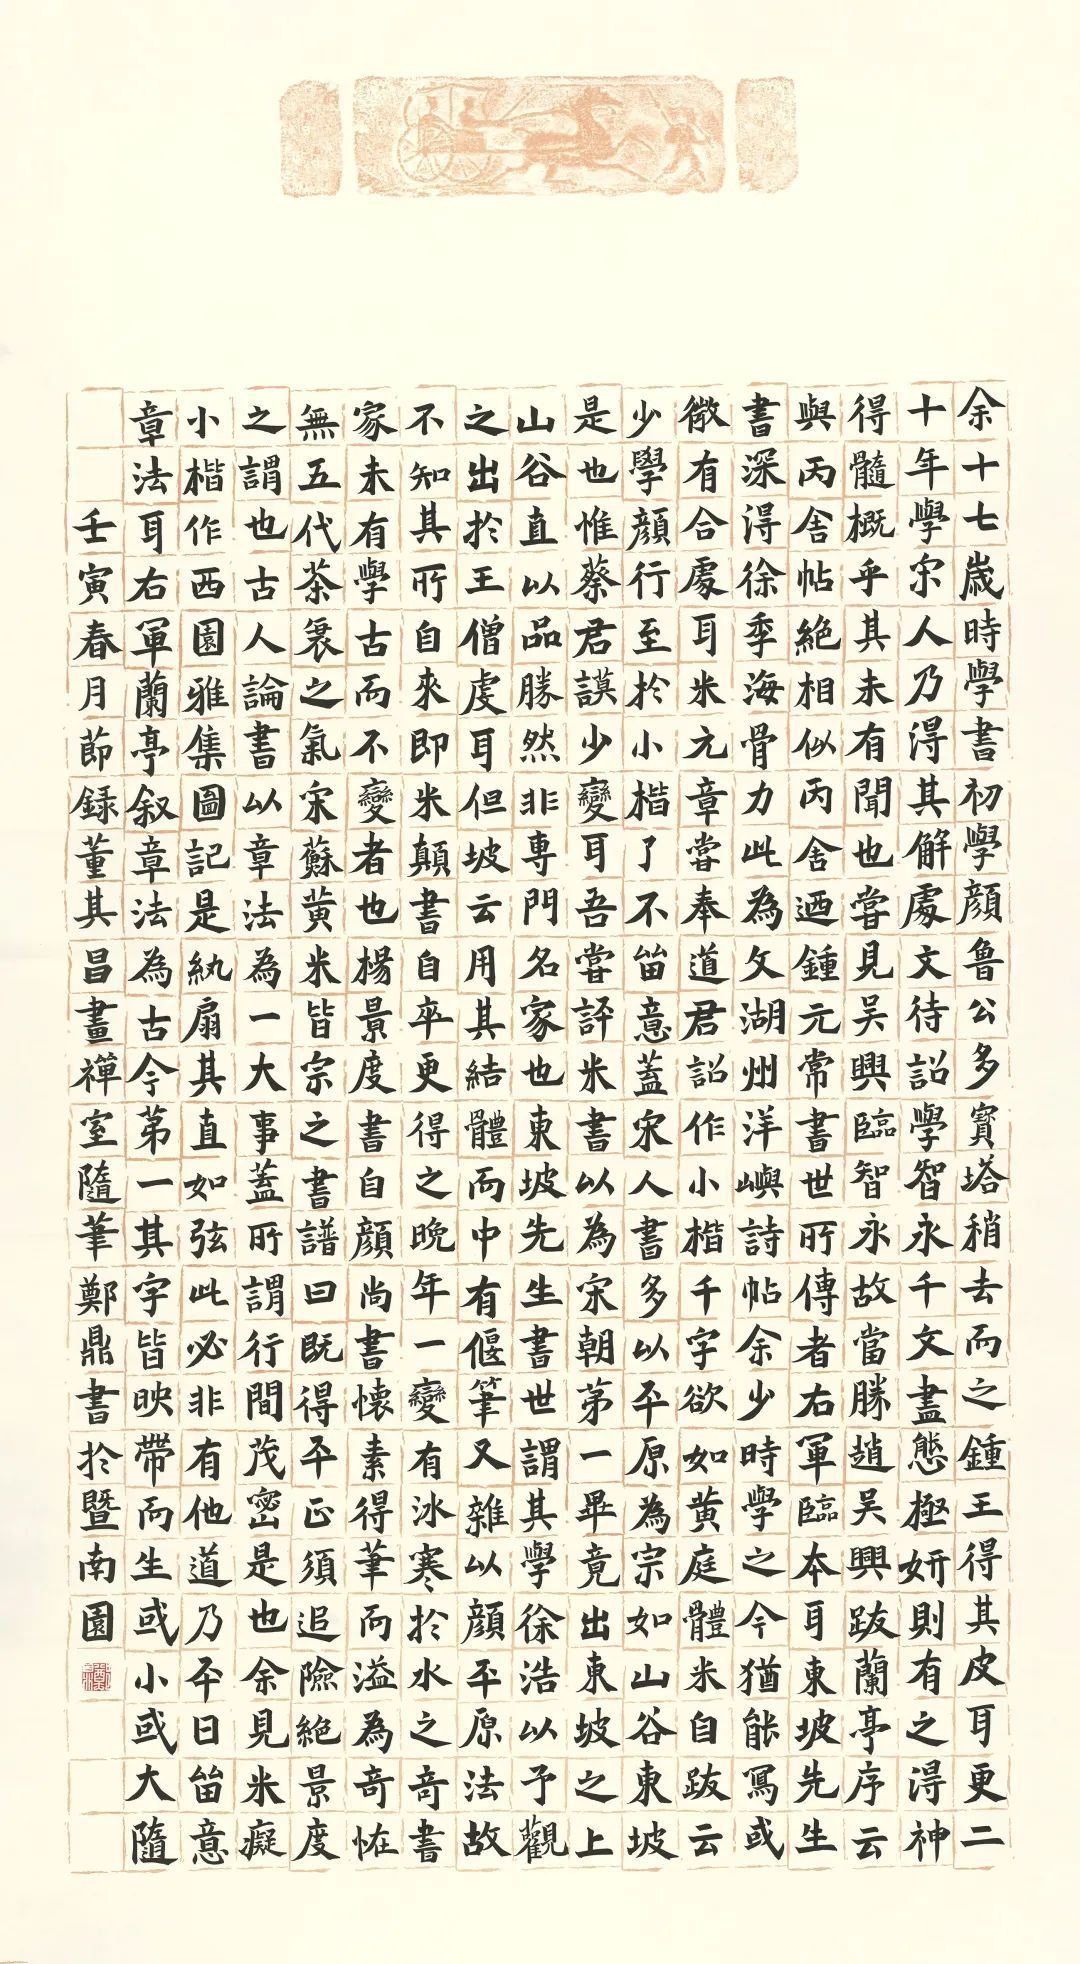 余十七歲時學書初學顏魯公多寶塔稍去而之鍾王得其皮耳更二
十年學宋人乃得其解處文待詔學智永千文盡態極妍則有之得神
得髓概乎其未有聞也嘗見吳興臨智永故當勝趙吳興跋蘭亭序云
與丙舍帖絕相似丙舍迺鍾元常書世所傳者右軍臨本耳東坡先生
書深得徐季海骨力此為文湖州洋嶼詩帖余少時學之今猶能寫或
微有合處耳米元章嘗奉道君詔作小楷千字欲如黃庭體米自跋云
少學顏行至於小楷了不留意蓋宋人書多以平原為宗如山谷東坡
是也惟蔡君謨少變耳吾嘗評米書以為宋朝第一畢竟出東坡之上
山谷直以品勝然非專門名家也東坡先生書世謂其學徐浩以予觀
之出於王僧虔耳但坡云用其結體而中有偃筆又雜以顏平原法故
不知其所自來即米顛書自卒更得之晚年一變有冰寒於水之奇書
家未有學古而不變者也楊景度書自顏尚書懷素得筆而溢為奇恠
無五代茶衰之氣宋蘇黃米皆宗之書譜曰既得平正須追險絕景度
之謂也古人論書以章法為一大事蓋所謂行間茂密是也余見米癡
小楷作西園雅集圖記是紈扇其直如弦此必非有他道乃平日留意
章法耳右軍蘭亭叙章法為古今第一其字皆映帶而生或小或大隨
壬寅春月節録董其昌畫禪室隨筆鄭鼎書於暨南園